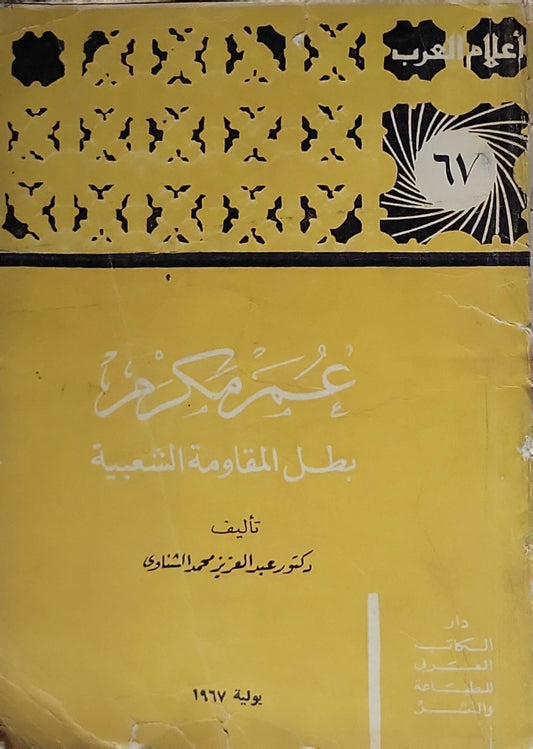 أعلام العرب
٦٧
عُمَر مَكرَم
بطل المقاومة الشعبية
تأليف
دكتور عبد العزيز محمد الشناوى
دار
الكاتب
العربى
للطباعة
والنشر
يولية ١٩٦٧